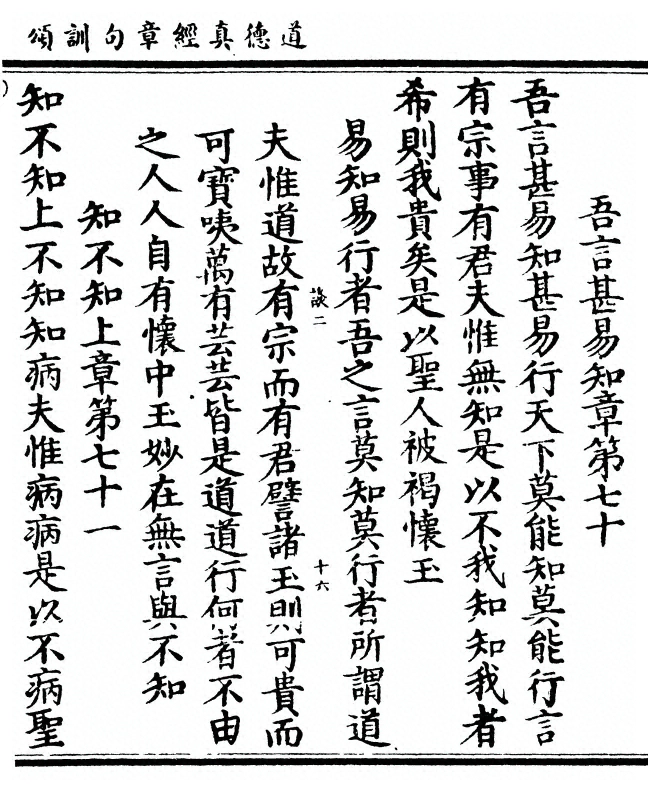 道德真經章句訓頌
吾言甚易知章第七十
吾言甚易知甚易行天下莫能知莫能行言
有宗事有君夫惟無知是以不我知知我者
希則我貴矣是以聖人被褐懷玉
易知易行者吾之言莫知莫行者所謂道
談二
十六
夫惟道故有宗而有君譬諸玉則可貴而
可寶咦萬有芸芸皆是道道行何者不由
之人人自有懷中玉妙在無言與不知
知不知上章第七十一
知不知上不知知病夫惟病病是以不病聖